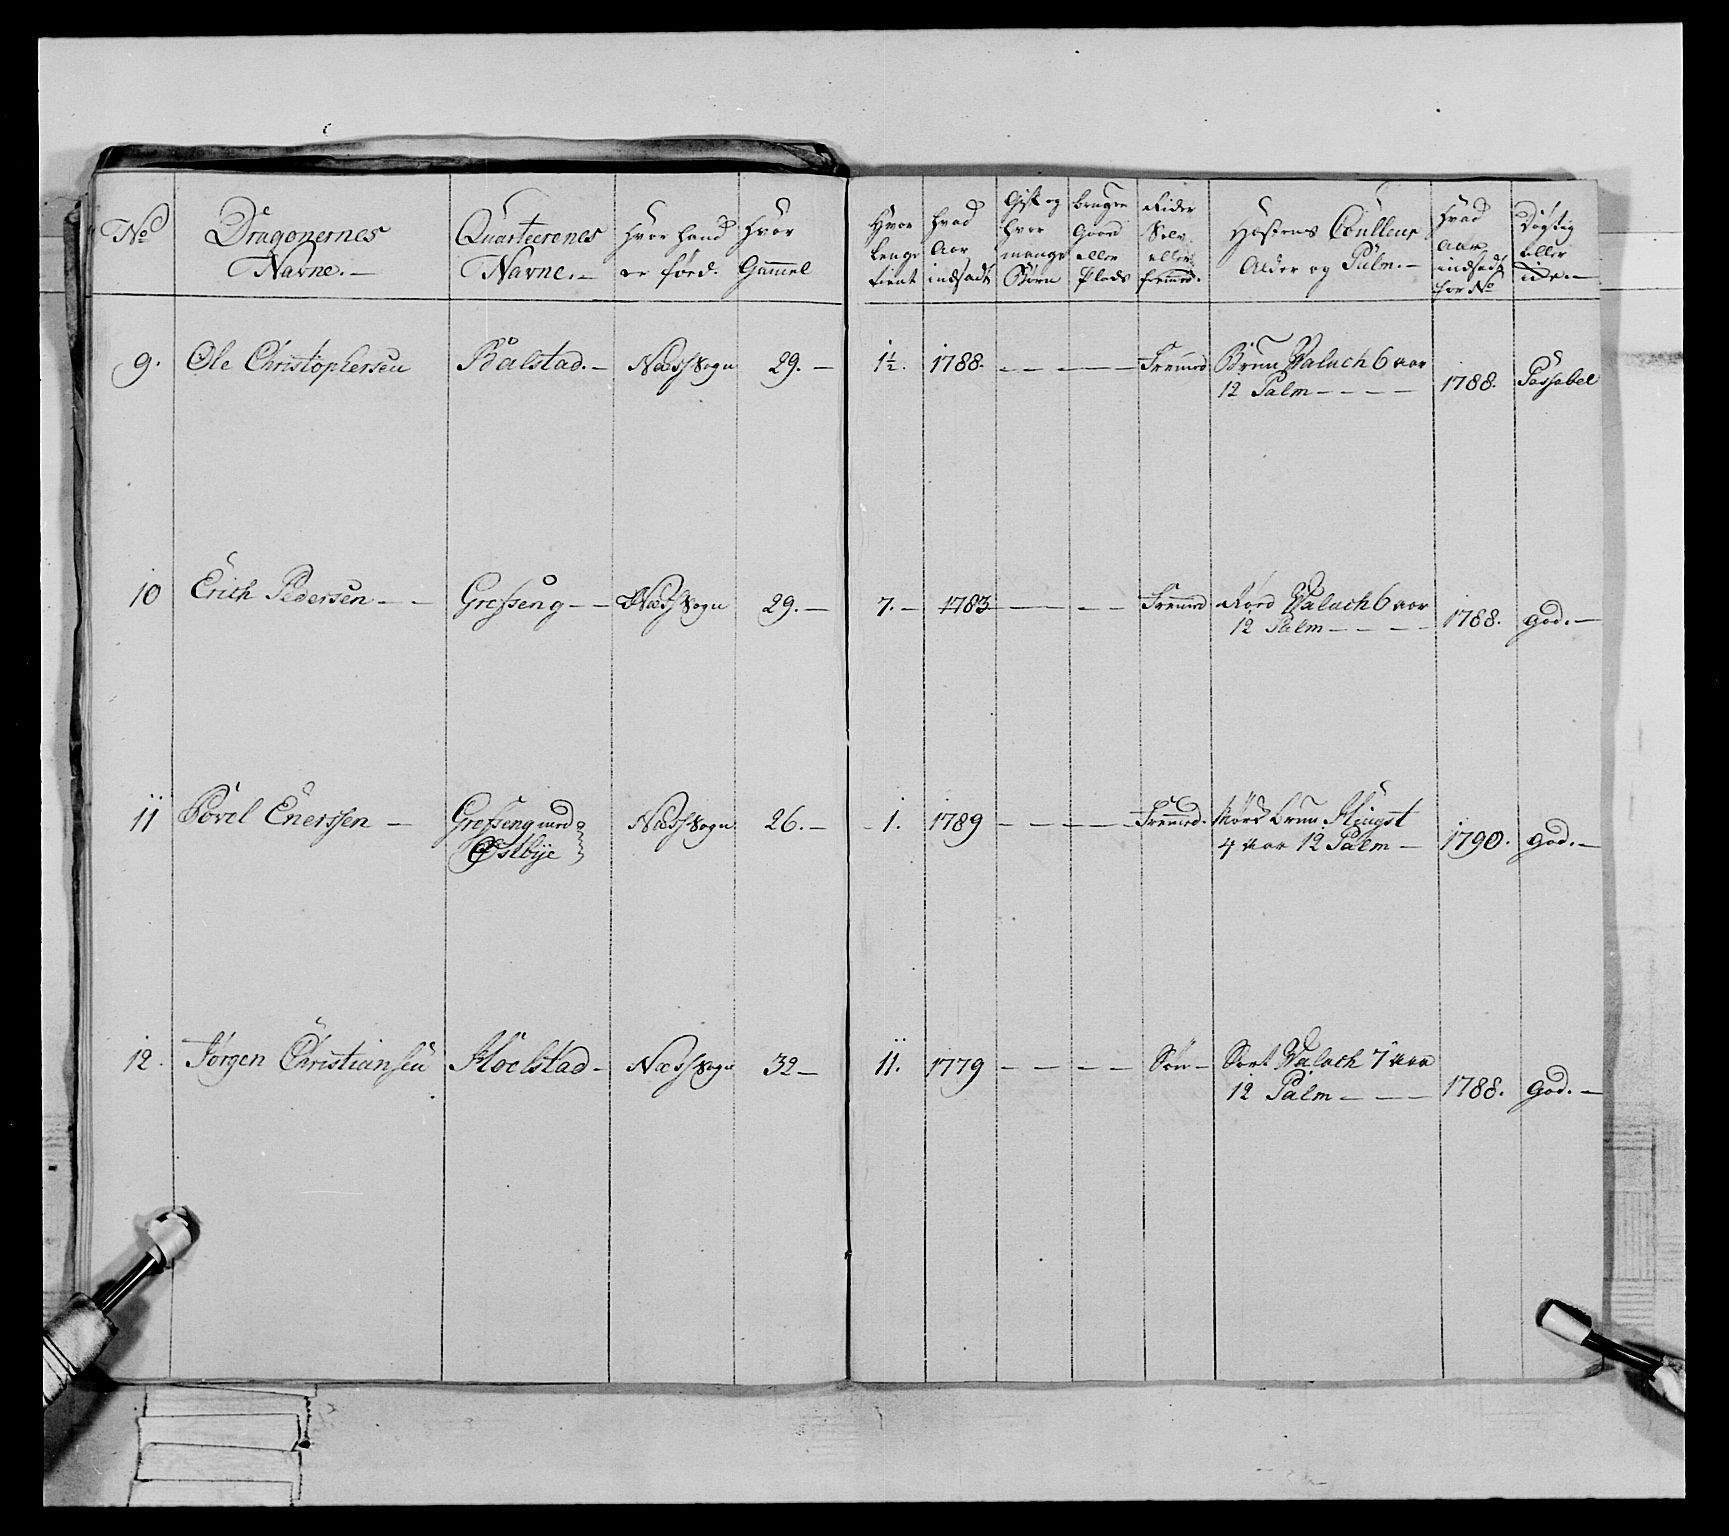 No Dragonernes Navne.— Quarteerenes Navne.— Hvor hand er föed. Hvor Gammel Hvor lenge tient hvad Aar indsadt Gift og hvor mange Börn bruger Gaard eller Plads Rider Selv eller fremmed. Hæstens Coulleur Alder og Palm.— Hvad Aar indsadt for No Dygtig eller icke.—
9. Ole Christophersen Balstad.— Næss Sogn 29.— 1½. 1788. — — — — Fremmed Brun Valach 6 aar
12 Palm — — — 1788. Passabel
10 Erich Pedersen — — Grefseng — — Næss Sogn 29.— 7.— 1783 — — — — Fremmed Röed Valach 6 aar
12 Palm — — — 1788. god.—
11 Povel Enersen — Grefseng med Næss Sogn 26.— 1. 1789 — — — — Fremmed. Mörk brun Hingst
Østbye 4 aar 12 Palm — 1790. god.—
12. Jörgen Christiansen Hoelstad — Næss Sogn 32— 11. 1779 — — — — Sön — Sort Valach 7 aar
12 Palm — — — 1788. god.—